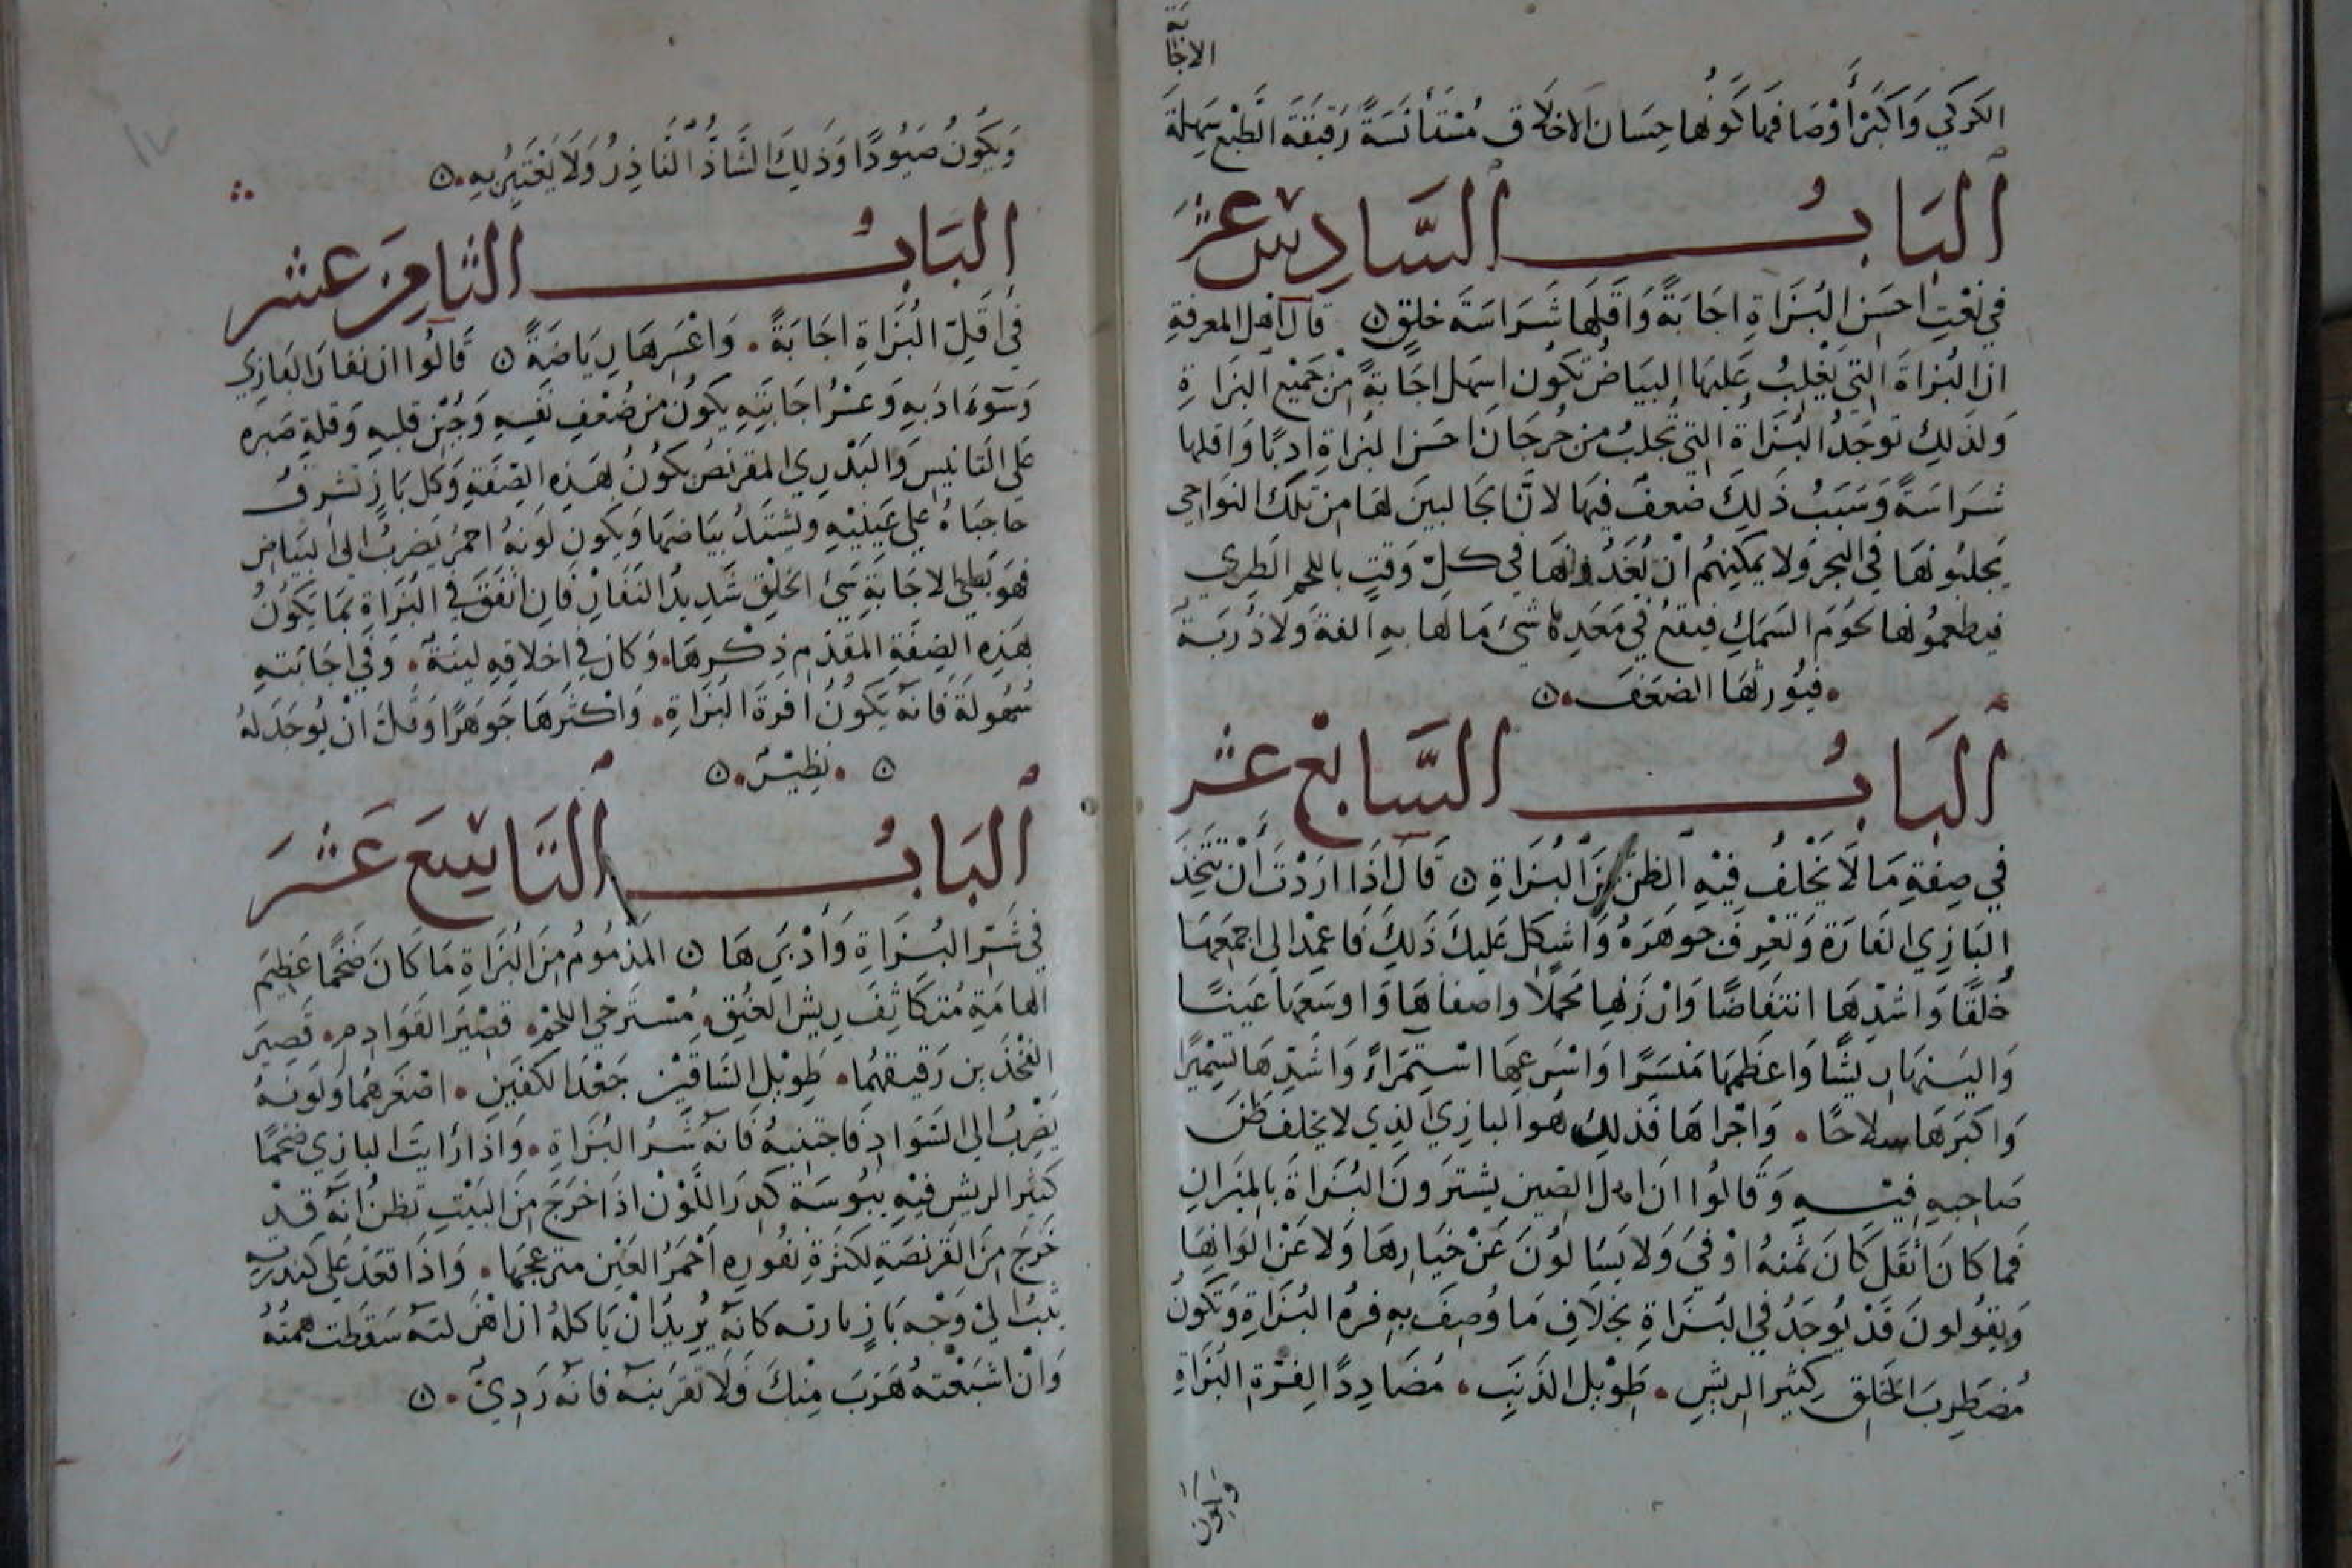 الاجابة
الكركي وَاكبَرُ أوْصَافها كَونُها حِسَان الاخلاق مُسْتَأنَسَةً رَقيقة الطّبْع سَهلةَ
اَلبَابُ السَّادِسْ عَشَر
في نَعْتِ احسَن البُزَاةِ اجَابَةً وَاقَلّهَا شَرَاسَة خلقٍ قال اهْل المعرفةِ
ان البُزاةَ التي يَغْلِبُ عَليهَا البيَاضُ تكُون اسهل اجَابةً منْ جَمِيْع البزَاةِ
وَلذَلِك توجَدُ البُزَاةُ التي تجلبُ من جُرجَان احسَن البزاةِ ادبًا وَاقلها
شَرَاسَةً وَسَبَبُ ذَلِكَ ضعفٌ فيهَا لانّ الجَالبينَ لهَا من تلكَ النوَاحي
يَجلبُونهَا في البَحر وَلا يمكِنهُم انْ يُغَذُّونهَا في كلّ وَقتٍ باللحم الطَرِي
فيطعمُونها لحُومَ السّمَكِ فيقعُ في مَعَدِهَا شئ مَا لها بهِ الفةٌ وَلا دُربَةٌ
فيُورثهَا الضعَفَ
اَلبَابُ السَّابعْ عَشَر
في صِفةِ مَا لَا يَخْلفُ فيْهِ الظنّ مِنَ البُزَاةِ قَالَ اِذَا ارَدْتَ أنْ تتّخِذَ
البَازِي الفَارَة وَتَعْرِفَ جَوهَرَهُ وَاشكل عَليكَ ذَلِكَ فَاعمِدْ الى اجمعهَا
خُلقًا وَاشدّهَا انتفاضًا وَارْزَنها محملًا وَاصفاهَا وَاوسَعهَا عَينًا
وَاليَنهَا ريشًا وَاعظَمهَا مَنسَرًا وَاسْرَعِهَا اسْتِمْرَاءً وَاشَدّهَا تشمِيْرًا
وَاكبَرهَا سِلاحًا وَاجْراهَا فذلِكَ هُوَ البازِي الذِي لا يخلفُ ظنّ
صَاحبِهِ فِيْهِ وَقَالوُا ان اهل الصّين يشترَونَ البُزَاةَ بالميزانِ
فما كانَ اثقَل كَانَ ثمنهُ اوْفي وَلا يَسَالوُنَ عَنْ خيَارهَا وَلا عَنْ الوَانِهَا
وَيقُولونَ قَدْ يُوجَدُ في البُزَاةِ بخلَافِ مَا وُصِفَ بهِ فرهُ البُزَاةِ وَتكونُ
مُضطرِبَ الخَلقِ كثير الريشِ طَوْيل الذَنَبِ مُضَادِدًا لِفُرّهِ البُزَاةِ
وَيكون
وَيكُونُ صَيُودًا وَذَلِكَ الشَّاذُّ النَّادِرُ وَلَا يَغْتَرّ بهِ
١٧
اِلبَابُ الثامِن عَشَر
في أقَلّ البُزَاةِ اجَابَةً وَاعْسَرهَا رِيَاضَةً قَالوُا ان نفارَ البَازِي
وَسوَء ادَبهِ وَعسْرُ اجَابَتِهِ يكوُن من ضُعْفِ نَفسِهِ وَجُبْن قلبهِ وَقلةِ صَبره
عَلى التَانيسِ وَالبَدْرِي المقرنصُ يكوُنُ بهَذِهِ الصّفَةِ وَكل بَازٍ تشرفُ
حَاجبَاهُ عَلى عَينَيْهِ ويشتَدُ بيَاضهَا وَيكون لونهُ احمرُ يَضربُ الى البيَاض
فهَو بَطيُ الاجَابَةِ سَيُ الخلقِ شَدِيدُ النفَارْ فَان اتّفقَ في البُزَاةِ مَا يَكوُنُ
بهَذِهِ الصِفَةِ المقدّم ذِكْرهَا وَكَان في اخلاقِهِ لينةٌ وَفي اجَابَتهِ
سُهُولةَ فانهُ يَكوُنُ افرهَ البُزَاةِ وَاكثرهَا جَوهَرًا وَقلّ انْ يُوجَدَ لهُ
نظِيْرٌ
اَلبَابُ اَلتَّاسِعَ عَشَرَ
في شَرّ البُزَاةِ وَأدْبَرهَا المَذمُومُ مِنَ البُزَاةِ مَا كَانَ ضَخمًا عَظِيمَ
الهامَةِ مُتكَاثِفَ رِيش العُنُقِ مُسْترَخي اللَحْمِ قصْيرَ القَوَادِمِ قَصِيرَ
الفخْذَين رَقيقهُمَا طَوِيْل السّاقَيْنِ جَعْدَ الكَفّينِ اصْغَرهُمَا وَلَونهُ
يَضْرِبُ الى السّوَادِ فَاجتنبهُ فَانهُ شَرُّ البُزَاةِ وَاذَا رَايتَ البازِي ضخمًا
كثيَر الريشِ فيْهِ يبُوسَةٌ كدِرَ اللّوْن اذَا خرَجَ مِنَ البَيْتِ تظنُّ انهُ قدْ
خَرجَ مِنَ القَرْنَصَةِ لكَثْرَةِ نفُورهِ أحْمرُ العَيْن منزعجهَا وَاذَا قعَدَ عَلى كندرتِهِ
يثبُ الىْ وَجْه بَازيارته كانهُ يُرِيدُ انْ يَاكلهُ ان اهْزلتهُ سَقَطت همتُهُ
وَانْ اشبَعْتهُ هَرَبَ مِنكَ فَلا تَقرَبنهُ فانهُ رَدِيٌ